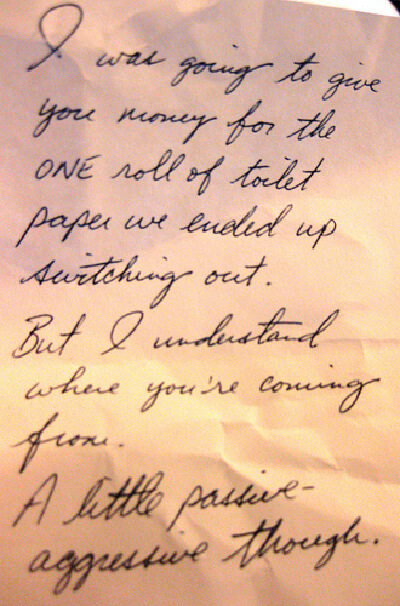 I was going to give
you money for the
ONE roll of toilet
paper we ended up
switching out.
But I understand
where you're coming
from.
A little passive-
aggressive though.